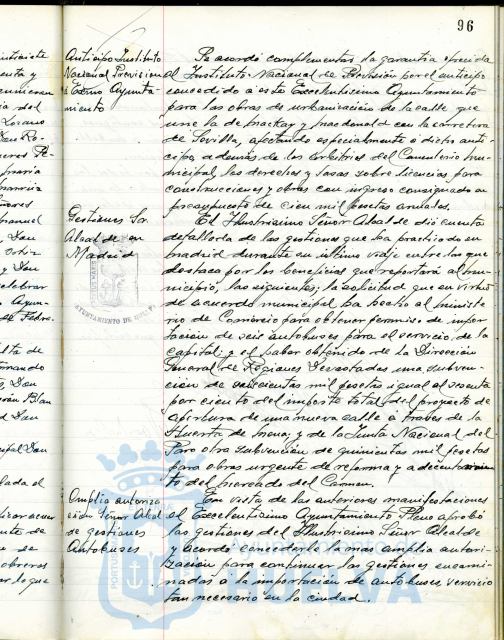 96
Anticipo Instituto
Nacional Prevision
a Excmo Ayunta-
miento
Se acordó complementar la garantia ofrecida
al Instituto Nacional de Previsión por el anticipo
concedido a este Excelentisimo Ayuntamiento
para las obras de urbanización de la calle que
une la de Mackay y Macdonald con la carretera
de Sevilla, afectando especialmente a dicho anti-
cipo, además de los arbitrios del Cementerio mu-
nicipal, los derechos y tasas sobre licencias para
construcciones y obras con ingreso consignado en
presupuesto de cien mil pesetas anuales.
Gestiones Sr.
Alcalde en
Madrid
El Ilustrisimo Señor Alcalde dió cuenta
detallada de las gestiones que ha practicado en
Madrid durante su último viaje entre las que
destaca por los beneficios que reportará al mu-
nicipio, las siguientes; la solicitud que en virtud
de acuerdo municipal ha hecho al ministe
rio de Comercio para obtener permiso de impor
tación de seis autobuses para el servicio de la
capital; y el haber obtenido de la Dirección
General de Regiones Devastadas una subven-
ción de seiscientas mil pesetas igual al sesenta
por ciento del importe total del proyecto de
apertura de una nueva calle a través de la
Huerta de Mena; y de la Junta Nacional del
Paro otra subvención de quinientas mil pesetas
para obras urgente de reforma y adecentamien
to del mercado del Carmen.
Amplia autoriza
ción Señor Alcal
de gestiones
Autobuses
En vista de las anteriores manifestaciones
el Excelentisimo Ayuntamiento Pleno aprobó
las gestiones del Ilustrisimo Señor Alcalde
y acordó concederle la mas amplia autori-
zación para continuar las gestiones encami-
nadas a la importación de autobuses, servicio
tan necesario en la ciudad.
AYUNTAMIENTO DE